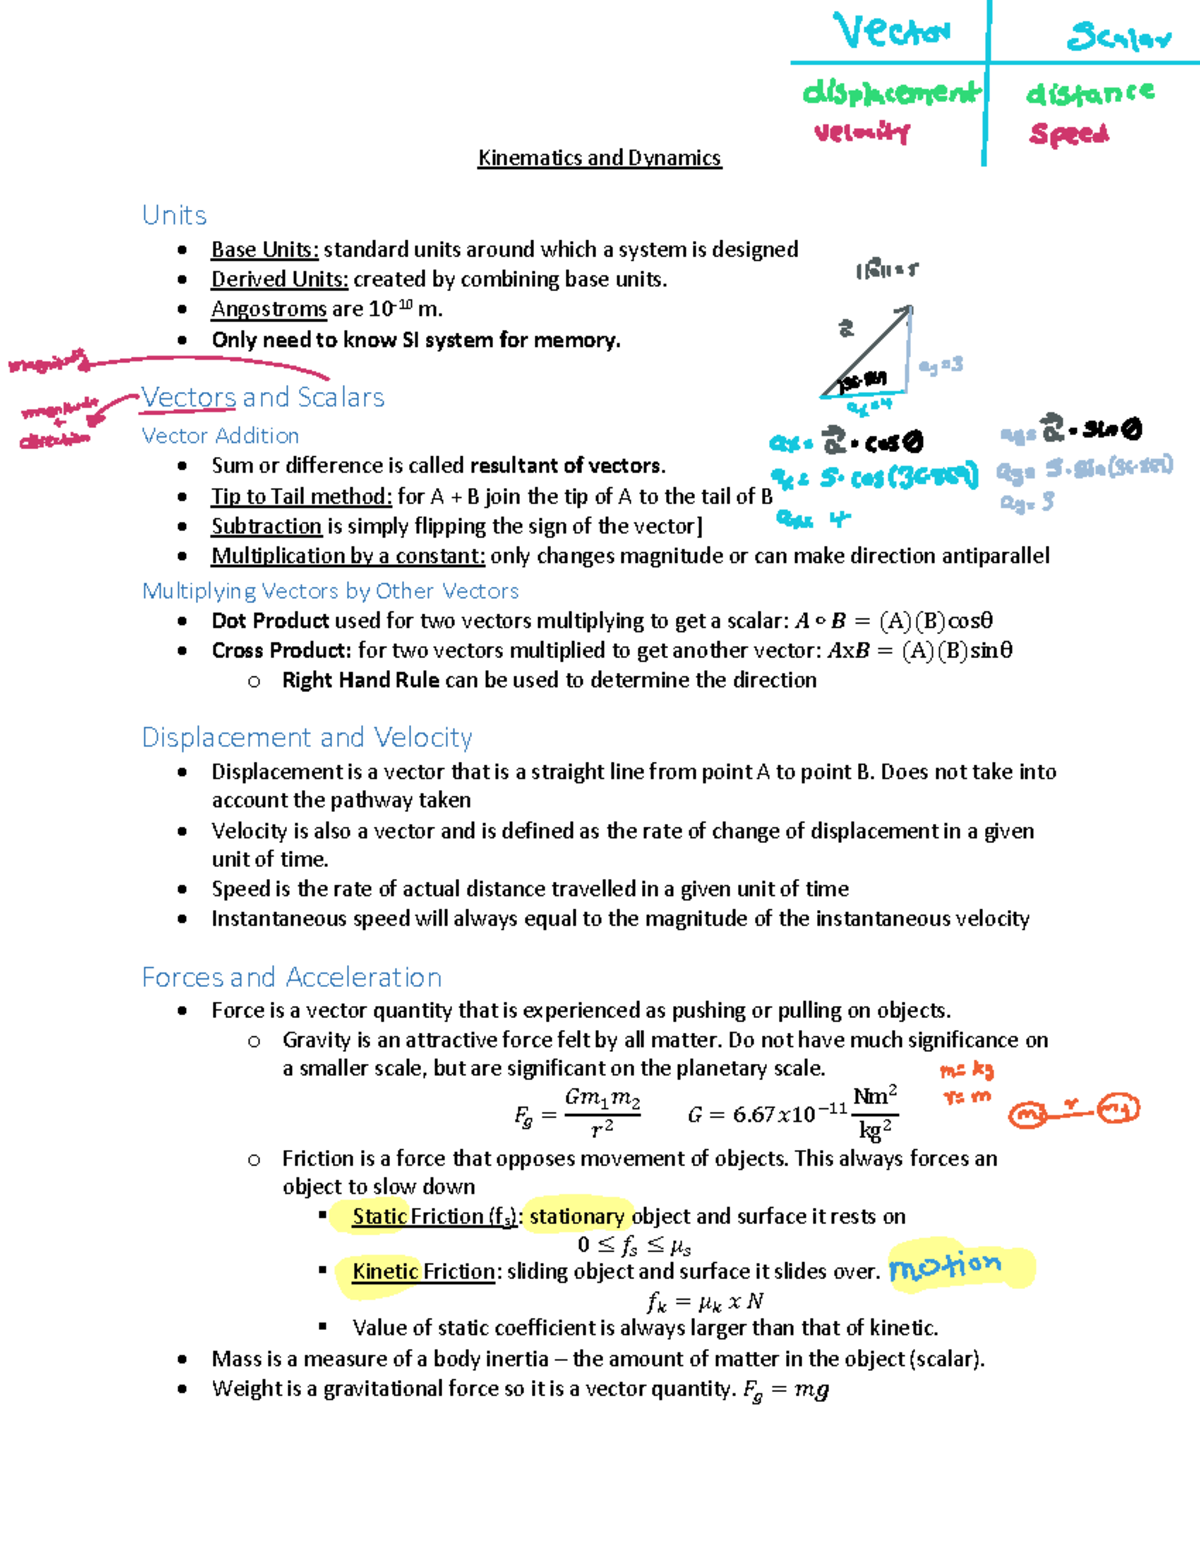 Vector Scalar
displacement distance
velocity speed
Kinematics and Dynamics
Units
• Base Units: standard units around which a system is designed
• Derived Units: created by combining base units.
• Angostroms are 10⁻¹⁰ m.
• Only need to know SI system for memory.
||a⃗|| = 5
a⃗
ay = 3
ax = 4
magnitude
Vectors and Scalars
magnitude
+
direction
Vector Addition
ax = a⃗ • cos θ
ay = a⃗ • sin θ
• Sum or difference is called resultant of vectors.
ax = 5 • cos(36.869)
ay = 5 • sin(36.869)
• Tip to Tail method: for A + B join the tip of A to the tail of B
ax = 4
ay = 3
• Subtraction is simply flipping the sign of the vector]
• Multiplication by a constant: only changes magnitude or can make direction antiparallel
Multiplying Vectors by Other Vectors
• Dot Product used for two vectors multiplying to get a scalar: A ∘ B = (A)(B)cosθ
• Cross Product: for two vectors multiplied to get another vector: AxB = (A)(B)sinθ
o Right Hand Rule can be used to determine the direction
Displacement and Velocity
• Displacement is a vector that is a straight line from point A to point B. Does not take into
account the pathway taken
• Velocity is also a vector and is defined as the rate of change of displacement in a given
unit of time.
• Speed is the rate of actual distance travelled in a given unit of time
• Instantaneous speed will always equal to the magnitude of the instantaneous velocity
Forces and Acceleration
• Force is a vector quantity that is experienced as pushing or pulling on objects.
o Gravity is an attractive force felt by all matter. Do not have much significance on
a smaller scale, but are significant on the planetary scale.
m = kg
r = m
F_g = Gm₁m₂/r² G = 6.67x10⁻¹¹ Nm²/kg²
m r
o Friction is a force that opposes movement of objects. This always forces an
object to slow down
▪ Static Friction (fₛ): stationary object and surface it rests on
0 ≤ fₛ ≤ μₛ
▪ Kinetic Friction: sliding object and surface it slides over. motion
fₖ = μₖ x N
▪ Value of static coefficient is always larger than that of kinetic.
• Mass is a measure of a body inertia – the amount of matter in the object (scalar).
• Weight is a gravitational force so it is a vector quantity. F_g = mg